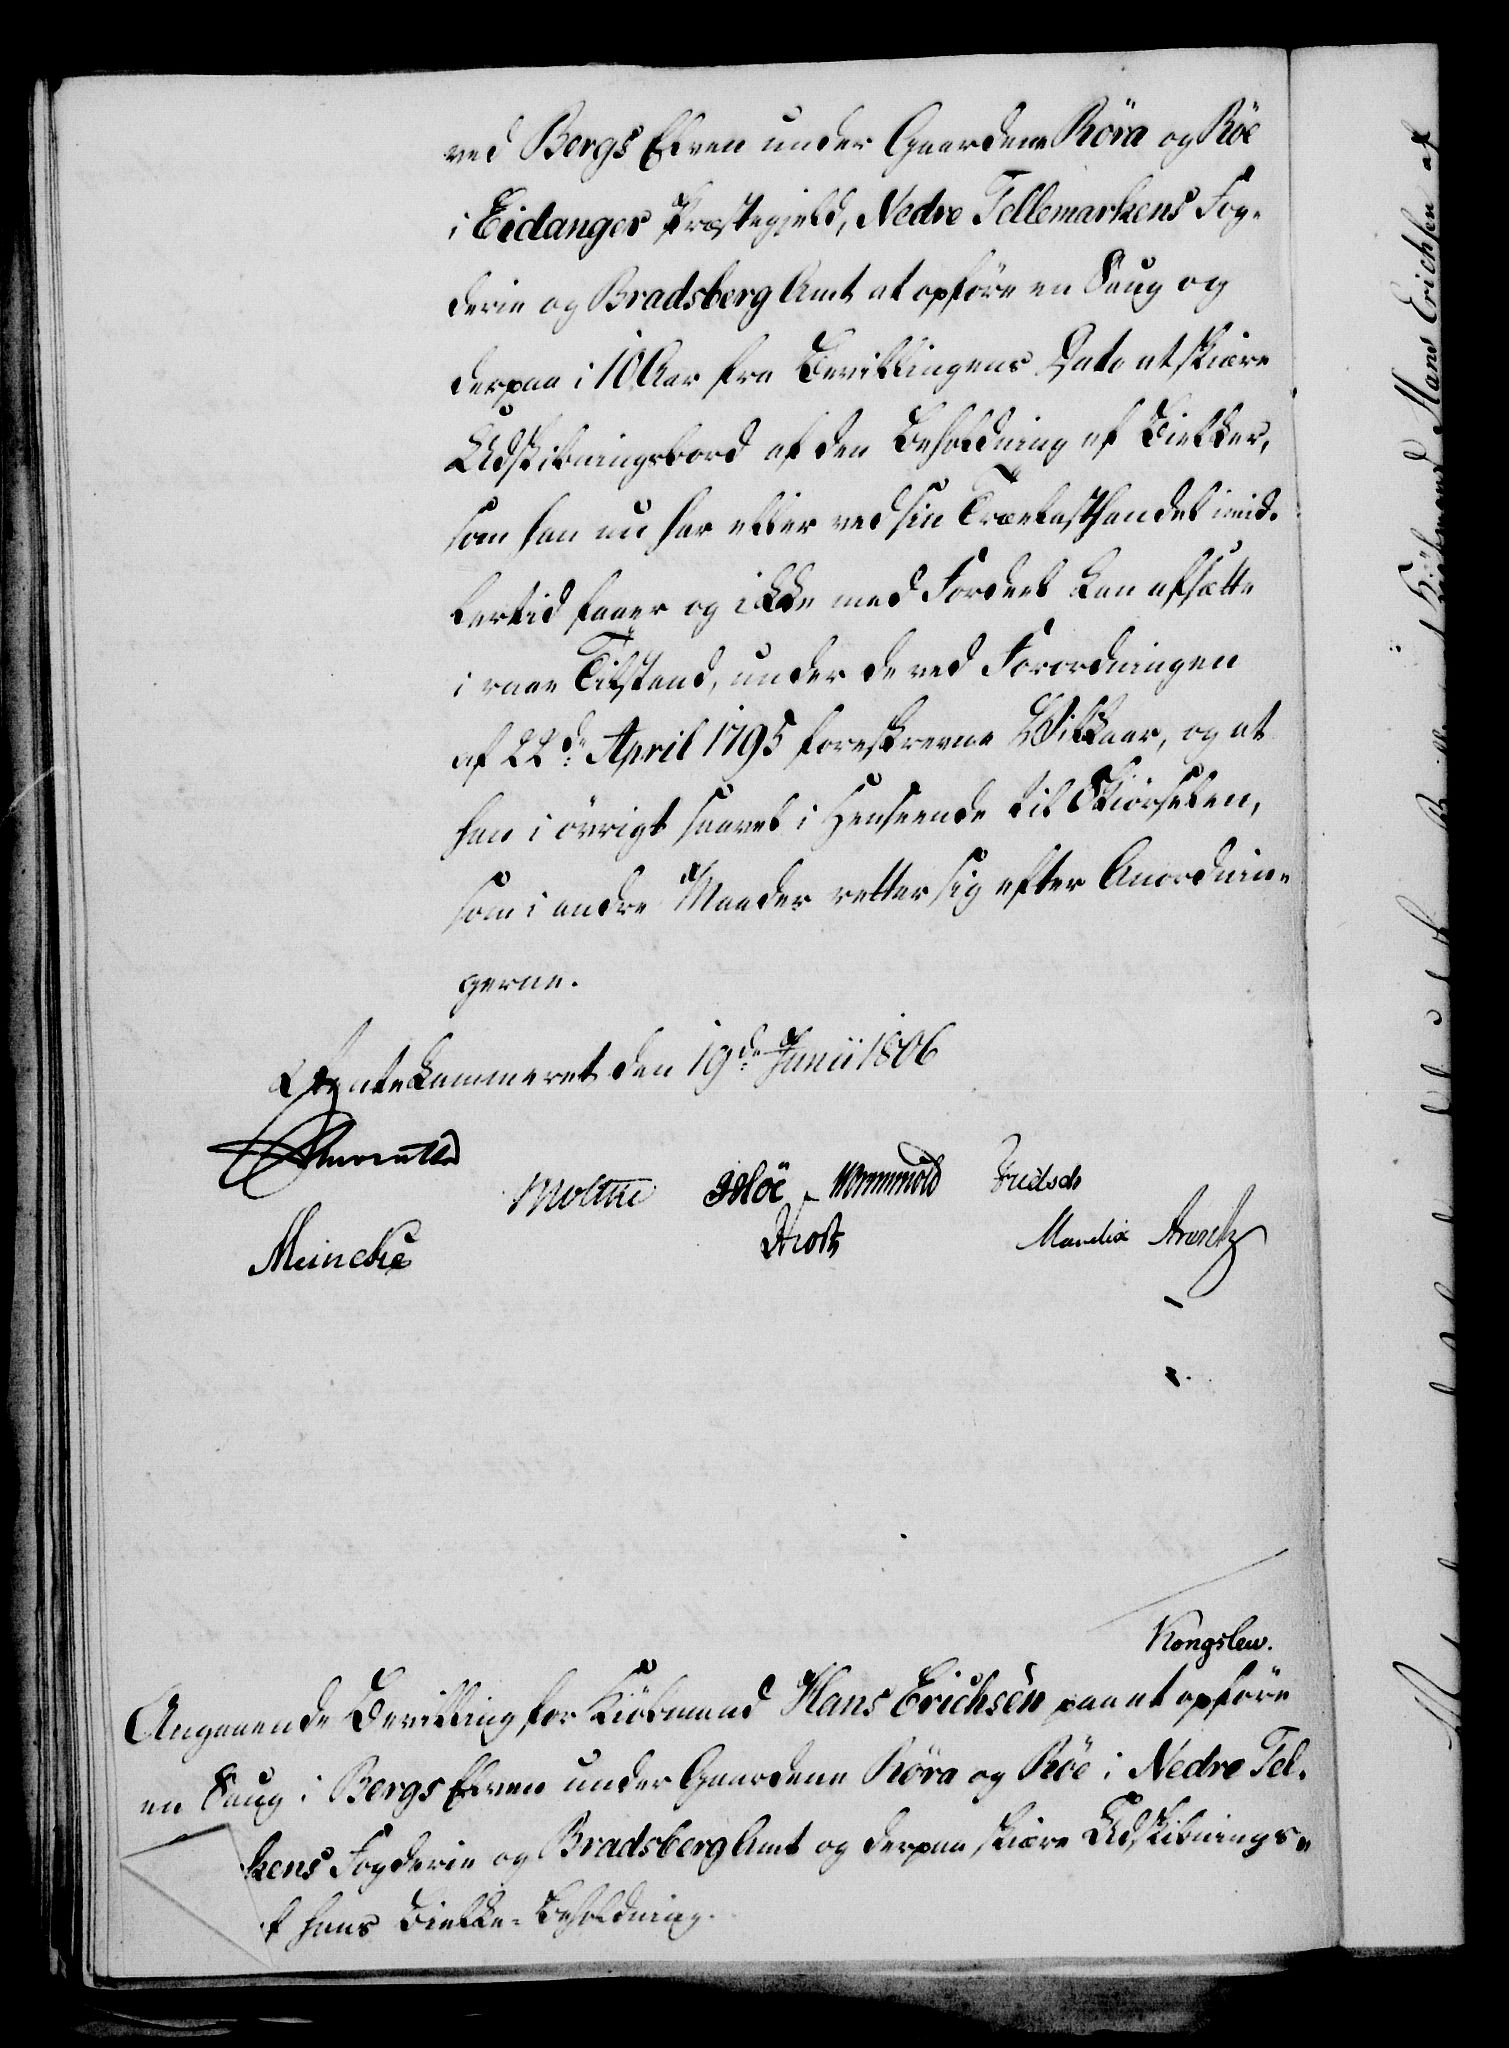 ved Bergs Elven under Gaardene Röra og Röe
i Eidanger Præstegjeld, Nedre Tellemarkens Fog-
derie og Bradsberg Amt at opföre en Saug og
derpaa i 10 Aar fra Bevillingens Dato at skiære
Udskibningsbord af den Beholdning af Bielker,
som han nu har eller ved sin Trælasthandel imid-
lertid faaer og ikke med Fordeel kan afsætte
i raae Tilstand, under de ved Forordningen
af 22de April 1795 foreskrevne Vilkaar, og at
han i övrigt saavel i Henseende til Skiörselen,
som i andre Maader retter sig efter Anordnin-
gerne.
Rentekammeret den 19de Junii 1806
Moltke Höe Wormskiold Fridsch
Meincke Mandix Arentz
Kongslew.
Angaaende Bevilling for Kiöbmand Hans Erichsen paa at opföre
en Saug i Bergs Elven under Gaardene Röra og Röe i Nedre Tel-
kens Fogderie og Bradsberg Amt og derpaa skiære Udskibnings-
f hans Bielke-Beholdning.
Kiöbmand Hans Erichsen af